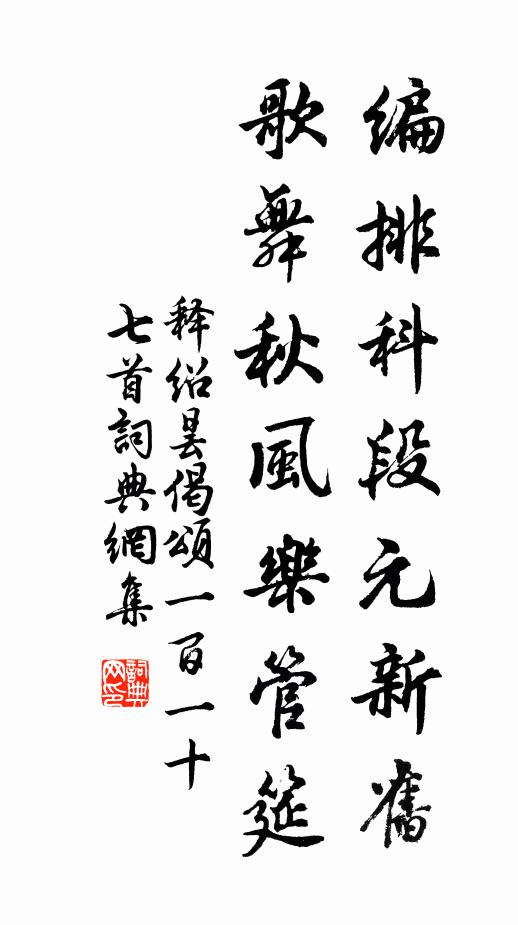 編排科段元新舊
歌舞秋風樂管筵
释紹曇偈頌一百一十
七首詞典網集
詞典網印